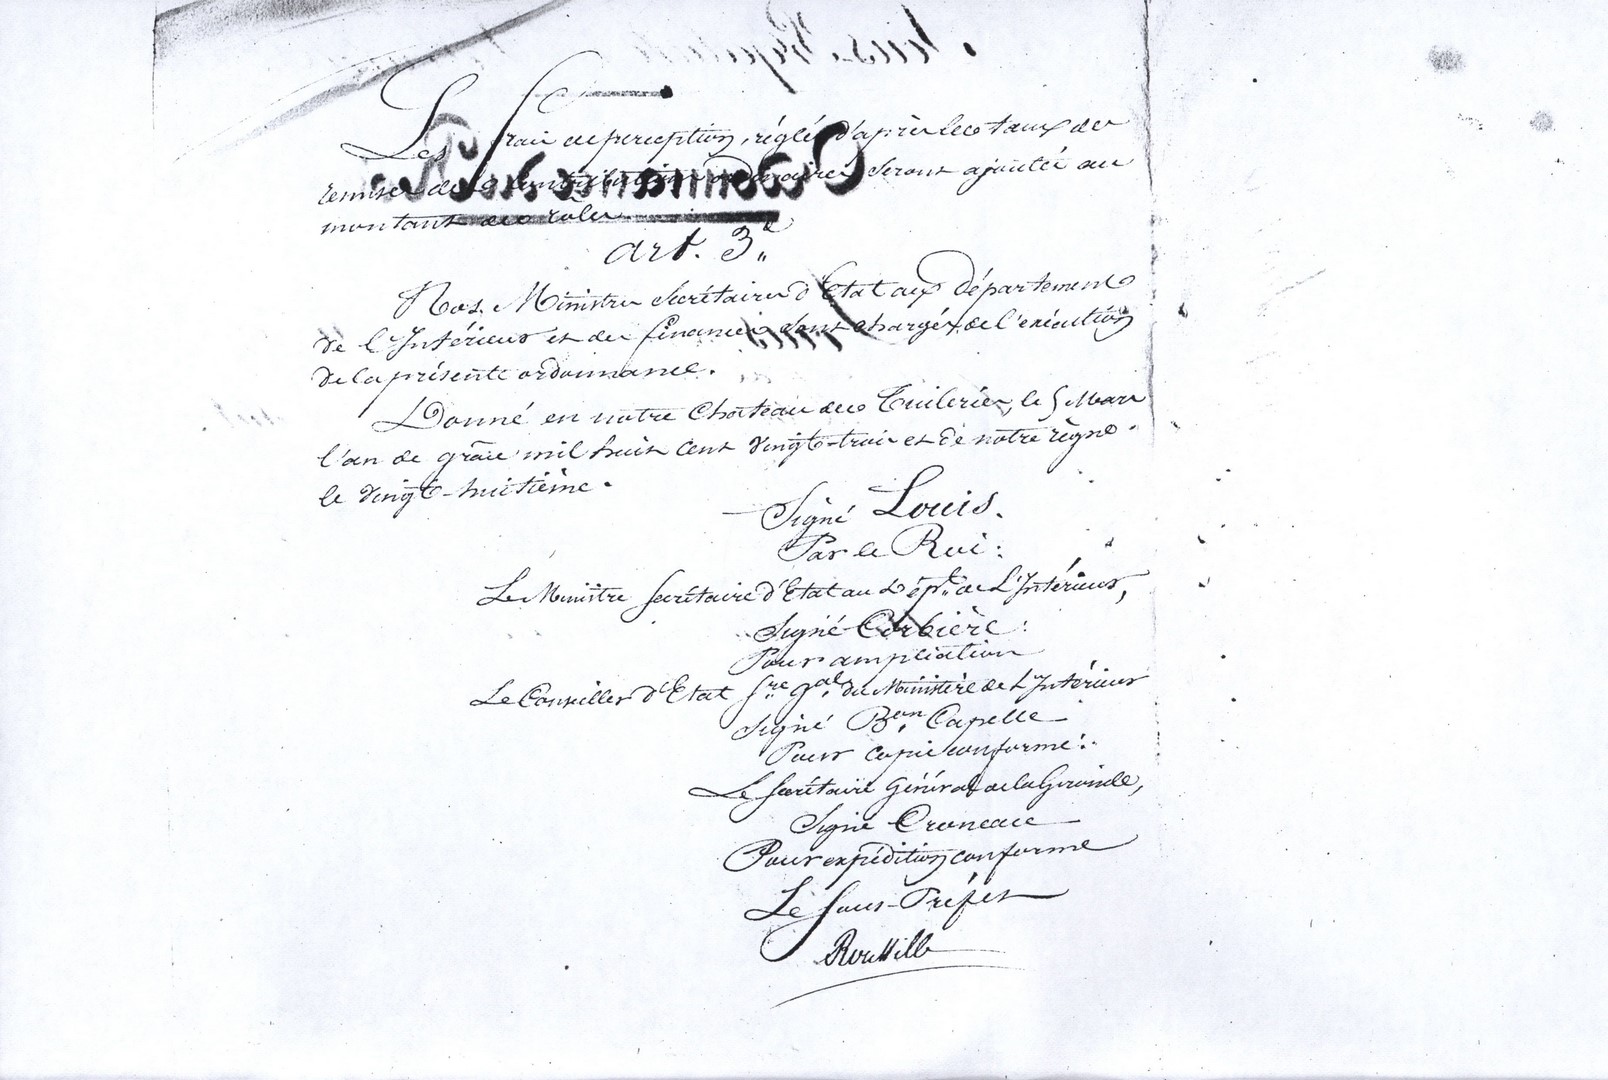 Les frais de perception, réglés d'après les taux des
remises des contributions ordinaires seront ajoutés au
montant des rôles
art. 3e
Nos Ministres Secrétaires d'Etat aux départements
de l'Intérieur et des finances sont chargés de l'exécution
de la présente ordonnance.
Donné en notre Château des Tuileries, le 5 Mars
l'an de grâce mil huit cent vingt-trois et de notre règne
le vingt-huitième.
Signé Louis.
Par le Roi:
Le Ministre Secrétaire d'Etat au Dépt. de L'Intérieur,
Signé Corbière:
Pour ampliation
Le Conseiller d'Etat Sre gal du Ministère de L'Intérieur
Signé Bon Capelle
Pour copie conforme:
Le Secrétaire Général de la Gironde,
Signé
Pour expédition conforme
Le Sous-Préfet
Roussille